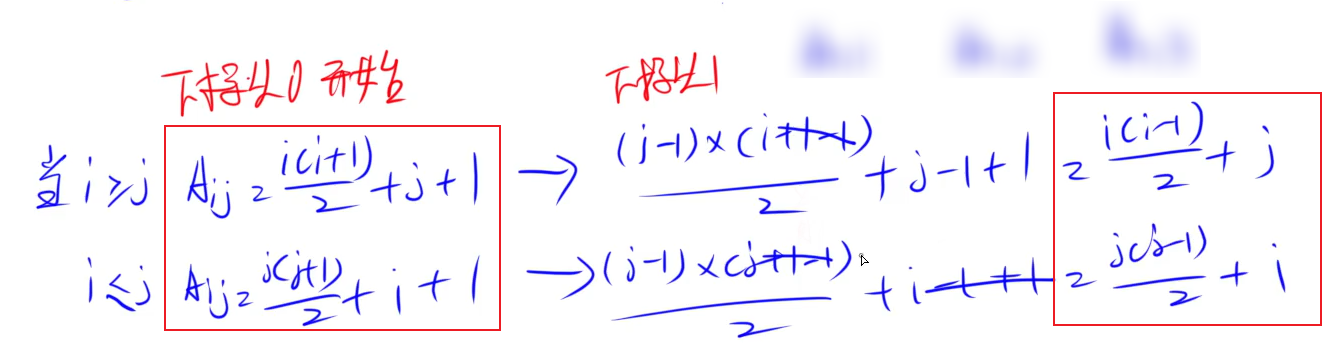 下标从0 开始 下标从1
当 i≥j Aij = i(i+1)/2 + j + 1 → (j-1)×(i+1-1)/2 + j-1+1 = i(i-1)/2 + j
i≤j Aij = j(j+1)/2 + i + 1 → (j-1)×(j+1-1)/2 + i-1+1 = j(j-1)/2 + i